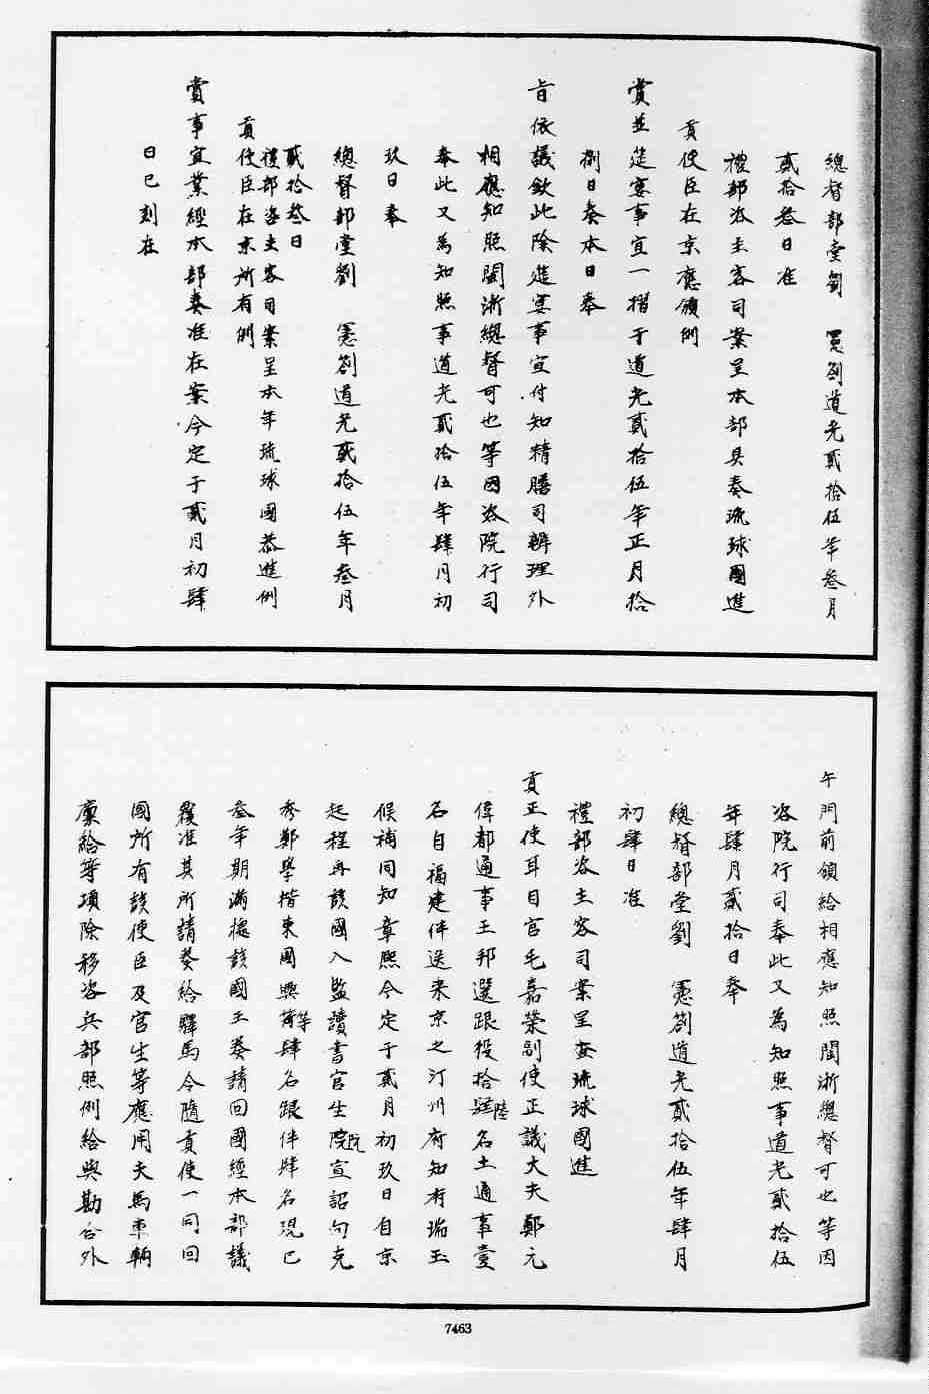 總督部堂劉　憲劄道光貳拾伍年叁月
貳拾叁日准
禮部咨主客司案呈本部具奏琉球國進
貢使臣在京應領例
賞並筵宴事宜一摺于道光貳拾伍年正月拾
捌日奏本日奉
旨依議欽此除筵宴事宜付知精膳司辦理外
相應知照閩浙總督可也等因咨院行司
奉此又為知照事道光貳拾伍年肆月初
玖日奉
總督部堂劉　憲劄道光貳拾伍年叁月
貳拾叁日
禮部咨主客司案呈本年琉球國恭進例
貢使臣在京所有例
賞事宜業經本部奏准在案今定于貳月初肆
日巳刻在
午門前頒給相應知照閩浙總督可也等因
咨院行司奉此又為知照事道光貳拾伍
年肆月貳拾日奉
總督部堂劉　憲劄道光貳拾伍年肆月
初肆日准
禮部咨主客司案呈查琉球國進
貢正使耳目官毛嘉榮副使正議大夫鄭元
偉都通事王邦選跟役拾陸名土通事壹
名自福建伴送来京之汀州府知府瑞玉
候補同知章熙今定于貳月初玖日自京
起程再該國入監讀書官生阮宣詔向克
秀鄭學楷東國興等肆名跟伴肆名現已
叁年期滿據該國王奏請回國經本部議
覆准其所請奏給驛馬令隨貢使一同回
國所有該使臣及官生等應用夫馬車輛
廩給等項除移咨兵部照例給與勘合外
7463